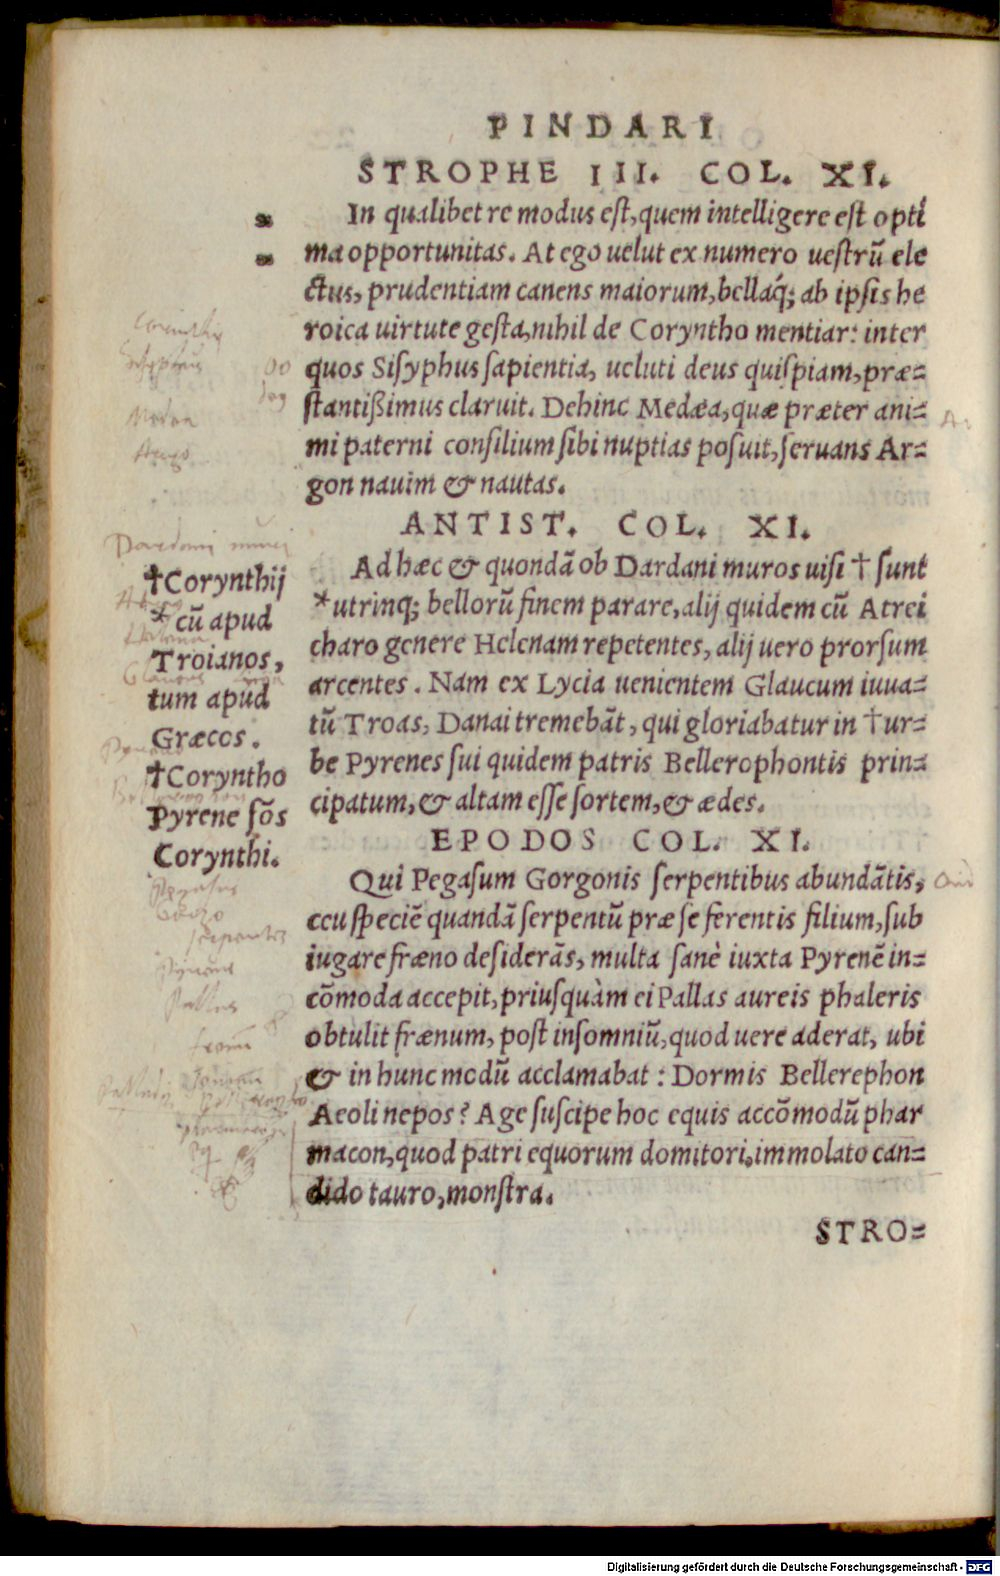 PINDARI
STROPHE III. COL. XI.
In qualibet re modus est, quem intelligere est opti
ma opportunitas. At ego uelut ex numero uestrũ ele
ctus, prudentiam canens maiorum, bellaq́; ab ipsis he
roica uirtute gesta, nihil de Coryntho mentiar: inter
quos Sisyphus sapientia, ueluti deus quispiam, præ=
stantißimus claruit. Dehinc Medæa, quæ præter ani=
mi paterni consilium sibi nuptias posuit, seruans Ar=
gon nauim & nautas.
ANTIST. COL. XI.
Ad hæc & quondã ob Dardani muros uisi † sunt
*utrinq; bellorũ finem parare, alij quidem cũ Atrei
charo genere Helenam repetentes, alij uero prorsum
arcentes. Nam ex Lycia uenientem Glaucum iuua=
tũ Troas, Danai tremebãt, qui gloriabatur in † ur=
be Pyrenes sui quidem patris Bellerophontis prin=
cipatum, & altam esse sortem, & ædes.
†Corynthij
*cũ apud
Troianos,
tum apud
Græcos.
†Coryntho
Pyrene fõs
Corynthi.
EPODOS COL. XI.
Qui Pegasum Gorgonis serpentibus abundãtis,
ceu speciẽ quandã serpentũ præ se ferentis filium, sub
iugare fræno desiderãs, multa sanè iuxta Pyrenẽ in=
cõmoda accepit, priusquàm ei Pallas aureis phaleris
obtulit frænum, post insomniũ, quod uere aderat, ubi
& in hunc modũ acclamabat: Dormis Bellerephon
Aeoli nepos? Age suscipe hoc equis accõmodũ phar
macon, quod patri equorum domitori, immolato can=
dido tauro, monstra.
STRO=
Digitalisierung gefördert durch die Deutsche Forschungsgemeinschaft - DFG